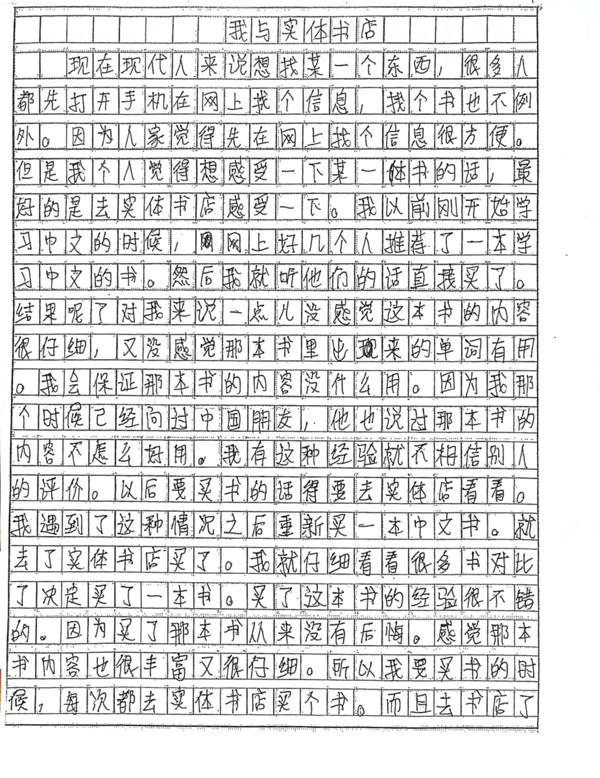 我与实体书店
现在现代人来说想找某一个东西，很多人
都先打开手机在网上找个信息，找个书也不例
外。因为人家觉得先在网上找个信息很方便。
但是我个人觉得想感受一下某一体书的话，最
好的是去实体书店感受一下。我以前刚开始学
习中文的时候，网上好几个人推荐了一本学
习中文的书。然后我就听他们的话直接买了。
结果呢了对我来说一点儿没感觉这本书的内容
很仔细，又没感觉那本书里出现来的单词有用
。我会保证那本书的内容没什么用。因为我那
个时候已经问过中国朋友，他也说过那本书的
内容不怎么好用。我有这种经验就不相信别人
的评价。以后要买书的话得要去实体店看看。
我遇到了这种情况之后重新买一本中文书。就
去了实体书店买了。我就仔细看看很多书对比
了决定买了一本书。买了这本书的经验很不错
的。因为买了那本书从来没有后悔。感觉那本
书内容也很丰富又很仔细。所以我要买书的时
候，每次都去实体书店买个书。而且去书店了